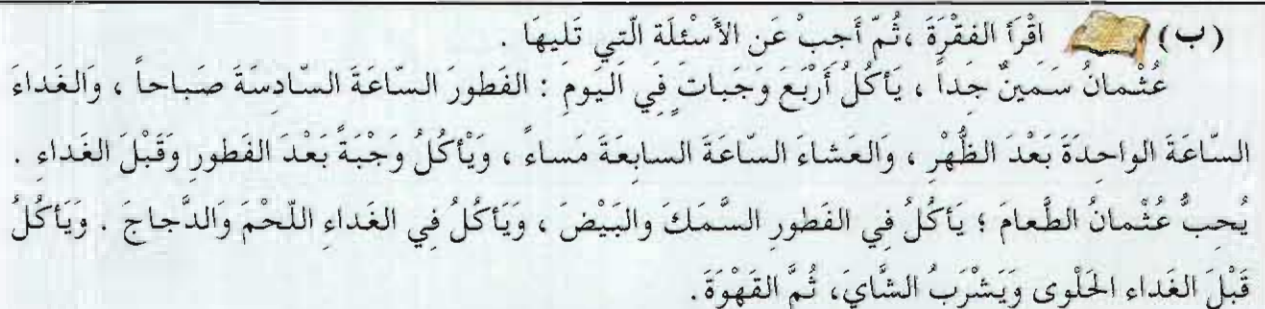 (ب) اقْرَأ الفقْرَةَ ،ثُمّ أَجبْ عَن الأَسْئلَة الّتِي تَليهَا .
عُثْمانُ سَمينٌ جداً ، يَأكُلُ أَرْبَعَ وَجَبات في اليَوم : الفَطورَ السّاعَةَ السّادسَةَ صَباحاً ، وَالغَداءَ
السّاعَةَ الواحدَةَ بَعْدَ الظُّهْر ، وَالعَشاءَ السّاعَةَ السابعَةَ مَساءً ، وَيْأكُلُ وَجْبَةً بَعْدَ الفَطور وَقَبْلَ الغَداء .
يُحبُّ عُثْمانُ الطَّعامَ ؛ يَأكُلُ في الفَطور السَّمَكَ والبَيْضَ ، وَيَأكُلُ في الغَداء اللّحْمَ وَالدَّجاجَ . وَيَأكُلُ
قَبْلَ الغَداء الحَلْوى وَيَشْرَبُ الشّايَ، ثُمَّ القَهْوَةَ.